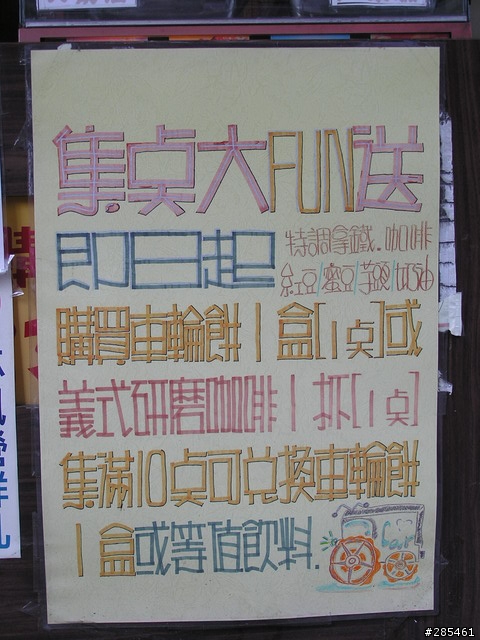 集点大FUN送
即日起
特調拿鐵.咖啡
紅豆/蜜豆/芋頭/奶油
購買車輪餅1盒[1点]或
義式研磨咖啡1杯[1点]
集滿10点可兌換車輪餅
1盒或等值飲料.
car
#285461